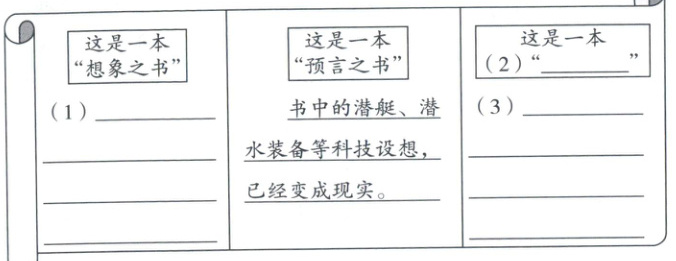 这是一本
“想象之书”
(1)
这是一本
“预言之书”
书中的潜艇、潜
水装备等科技设想，
已经变成现实。
这是一本
(2)“________”
(3)